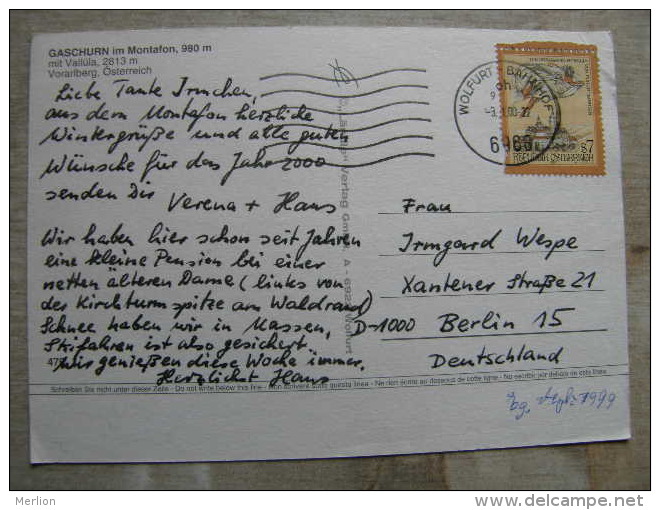 GASCHURN im Montafon, 980 m
mit Vallüla, 2813 m
Vorarlberg, Österreich
Liebe Tante Irmchen,
aus dem Montafon herzliche
Wintergrüße und alle guten
Wünsche für das Jahr 2000
senden Dir Verena + Hans
Wir haben hier schon seit Jahren
eine kleine Pension bei einer
netten älteren Dame (links von
der Kirchturmspitze am Waldrand)
Schnee haben wir in Massen,
Skifahren ist also gesichert
Wir genießen diese Woche immer.
Herzlichst Hans
WOLFURT BAHNHOF
REPUBLIK ÖSTERREICH
S7
Verlag
A - 6922 Wolfurt
Frau
Irmgard Wespe
Xantener Straße 21
D-1000 Berlin 15
Deutschland
Schreiben Sie nicht unter dieser Zeile - Do not write below this line - Non scrivere sotto questa linea - Ne rien écrire au dessous de cette ligne - No escribir por debajo de esta línea
Merlion
www.delcampe.net